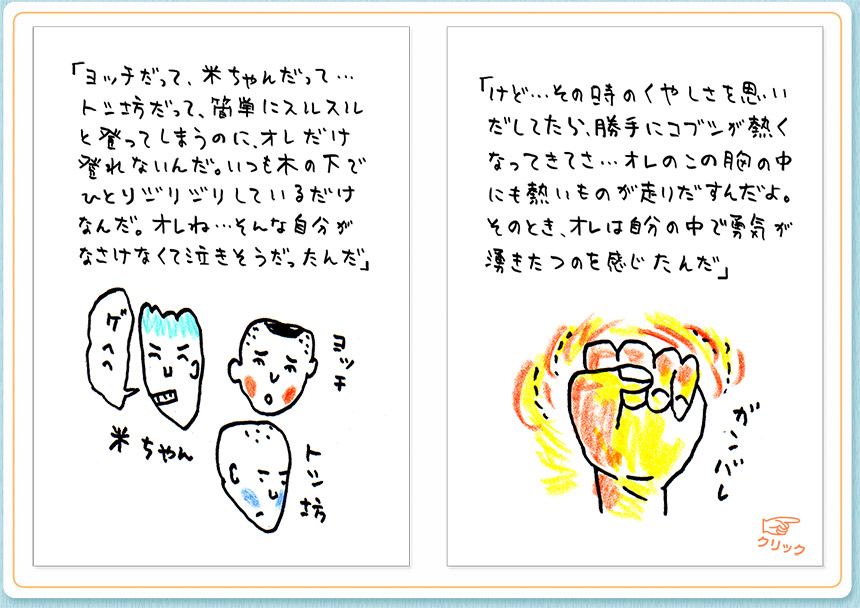 「ヨッチだって、米ちゃんだって…
トシ坊だって、簡単にスルスル
と登ってしまうのに、オレだけ
登れないんだ。いつも木の下で
ひとりジリジリしているだけ
なんだ。オレね…そんな自分が
なさけなくて泣きそうだったんだ」
ゲヘヘ
米ちゃん
ヨッチ
トシ坊
「けど…その時のくやしさを思い
だしてたら、勝手にコブシが熱く
なってきてさ…オレのこの胸の中
にも熱いものが走りだすんだよ。
そのとき、オレは自分の中で勇気が
湧きたつのを感じたんだ」
ガンバレ
クリック